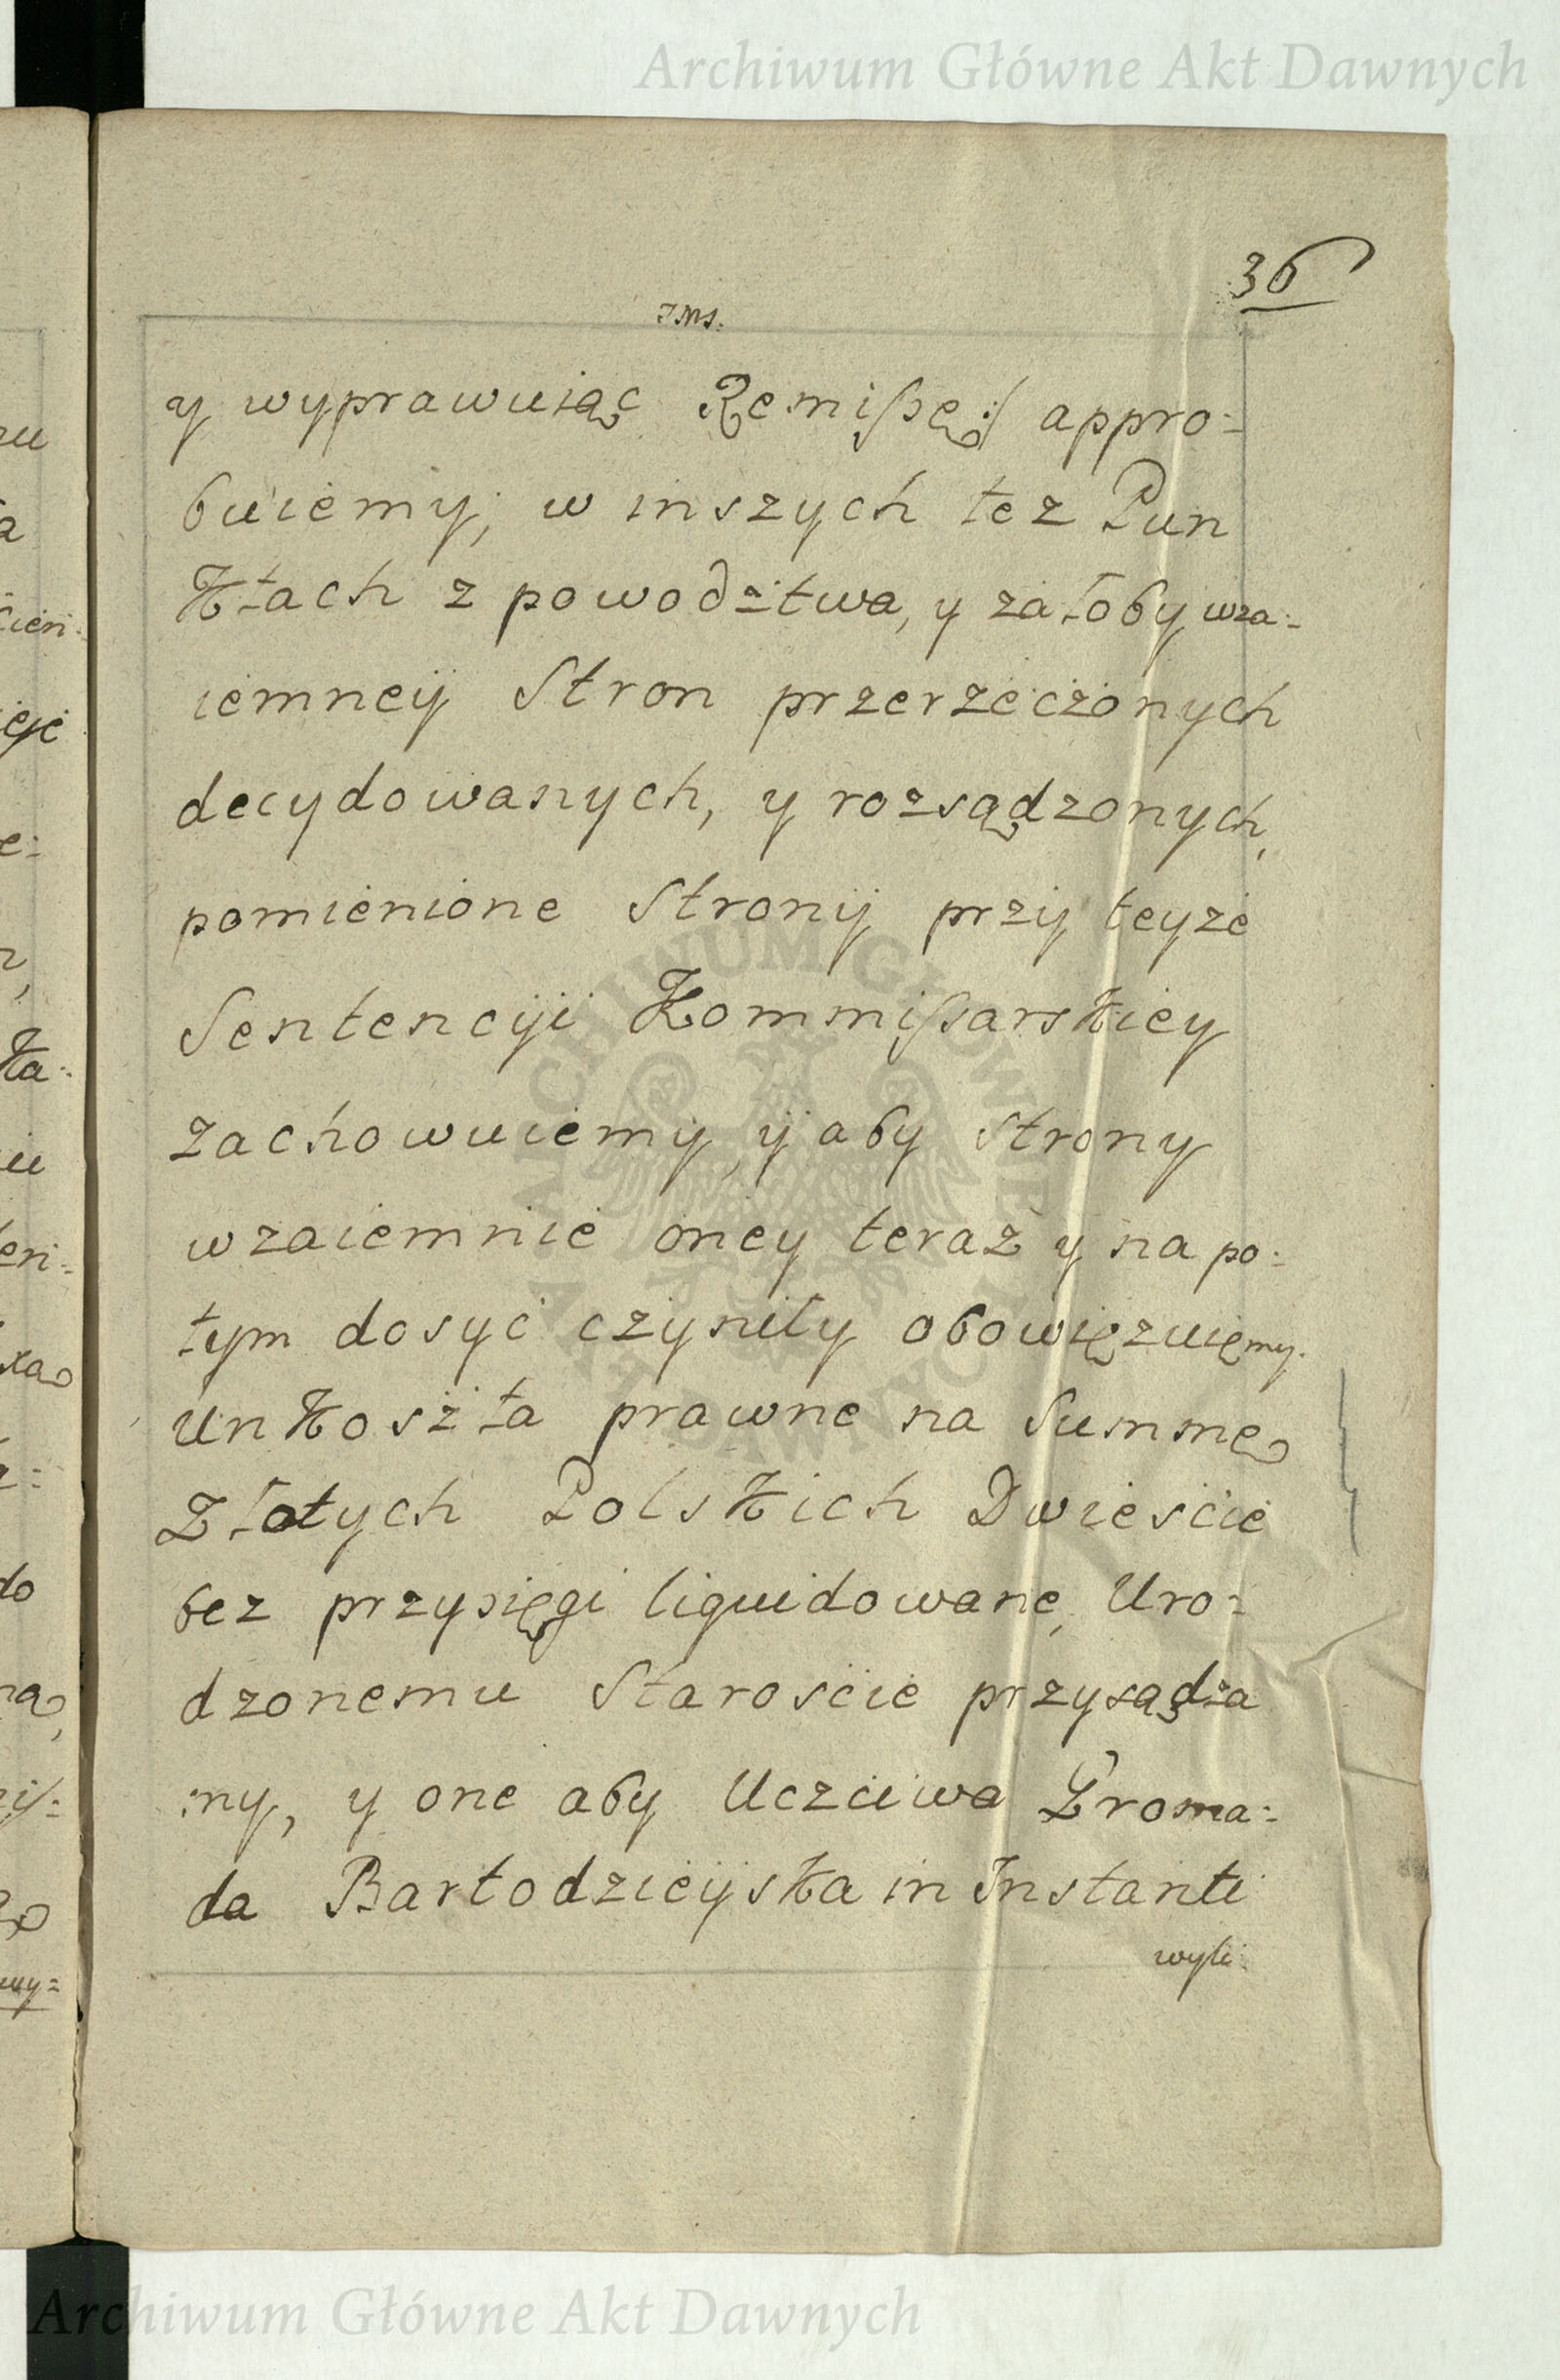 Archiwum Główne Akt Dawnych
36
JMS.
y wyprawuiąc Remißę:/ appro=
buiemy; w inszych też Pun
Ktach z powodztwa, y załoby wza=
iemney Stron przerzeczonych
decydowanych, y rozsądzonych,
pomienione Strony przy teyże
Sentencyi Kommißarskiey
zachowuiemy, y aby Strony
wzaiemnie oney teraz y na po=
tym dosyć czyniły obowięzuięmy.
unKoszta prawne na Summę
Złotych Polskich Dwieście
bez przysięgi liquidowane, Uro=
dzonemu Staroście przysądza
my, y one aby Uczciwa Groma=
da Bartodzieyska in Instanti
wyli
Archiwum Główne Akt Dawnych